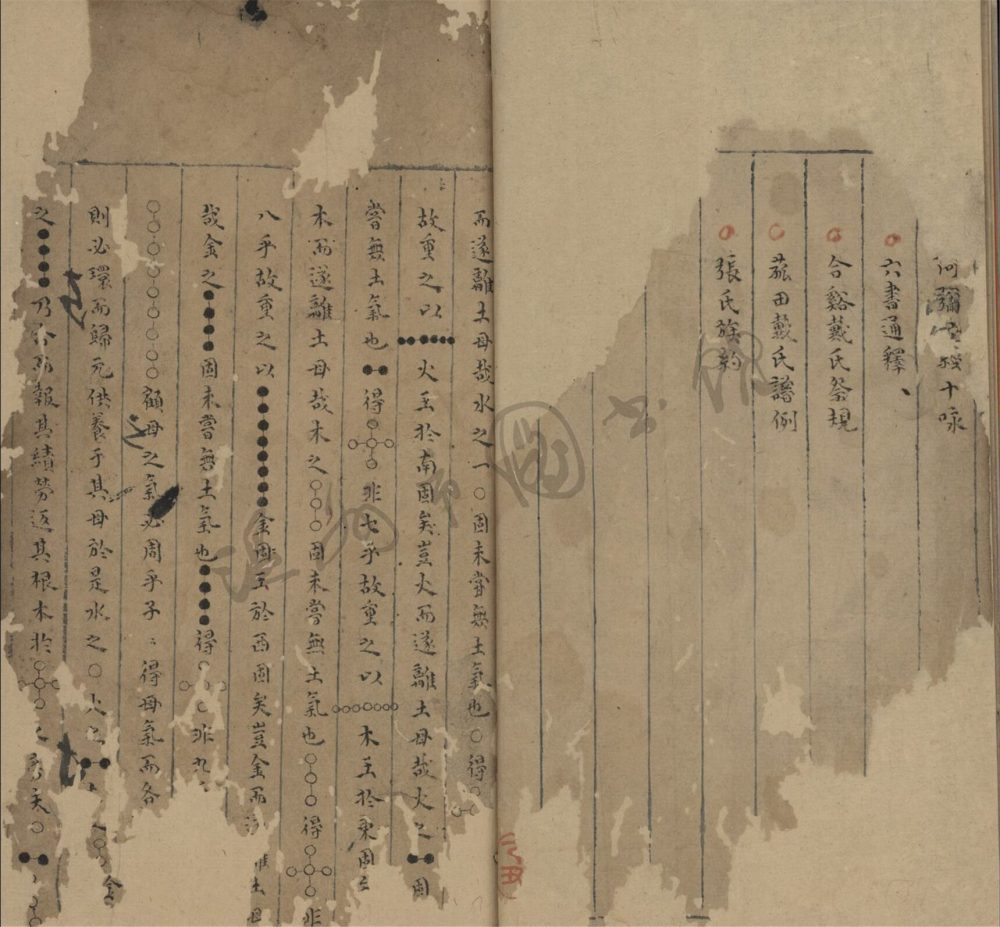 十咏
六書通釋、
合谿戴氏祭規
菰田戴氏譜例
張氏族約
而遂離土母哉水之一○固未嘗無土氣也○得
故重之以●●●●●●火王於南固矣豈火而遂離土母哉火之●●固
嘗無土氣也●●得非七乎故重之以○○○○○○○木王於東固
木而遂離土母哉木之○○○固未嘗無土氣也○○○得非
八乎故重之以●●●●●●●●金固王於西固矣豈金而離土母
哉金之●●●●固未嘗無土氣也●●●●得非九
○○○○○○○○○顧母之氣必周乎子〻得母氣而各
則必環而歸元供養于其母於是水之○火之●●
之●●●●乃合而報其績勞返其根本於